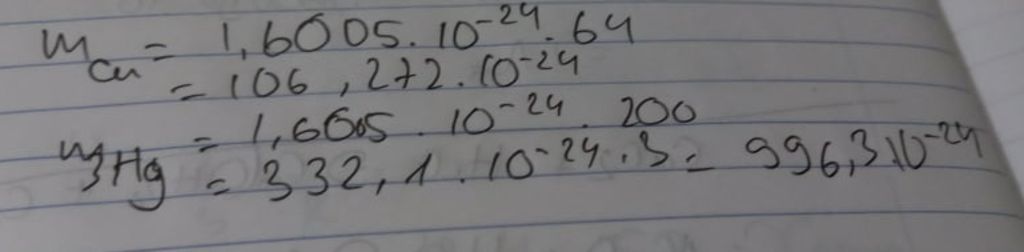 m Cu = 1,6605.10⁻²⁴.64
= 106,272.10⁻²⁴
m 3Hg = 1,6605.10⁻²⁴.200
= 332,1.10⁻²⁴.3 = 996,3.10⁻²⁴